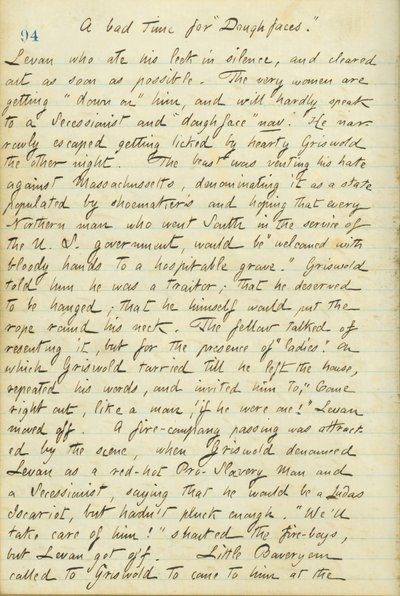 A bad Time for "Doughfaces."
94
Levan who ate his leek in silence, and cleared
out as soon as possible. The very women are
getting "down on" him, and will hardly speak
to a Secessionist and "doughface" now. He nar-
rowly escaped getting licked by hearty Griswold
the other night. The beast was venting his hate
against Massachussetts, denominating it as a state
populated by shoemakers and hoping that every
Northern man who went South in the service of
the U. S. government, would be "welcomed with
bloody hands to a hospitable grave." Griswold
told him he was a traitor; that he deserved
to be hanged; that he himself would put the
rope round his neck. The fellow talked of
resenting it, but for the presence of "ladies." On
which Griswold tarried till he left the house,
repeated his words, and invited him to, "Come
right out, like a man, if he were one!" Levan
moved off. A fire-company passing was attract-
ed by the scene, when Griswold denounced
Levan as a red-hot Pro-Slavery Man and
a Secessionist, saying that he would be a Judas
Iscariot, but hadn't pluck enough. "We'll
take care of him!" shouted the fire-boys,
but Levan got off. Little
called to Griswold to come to him at the